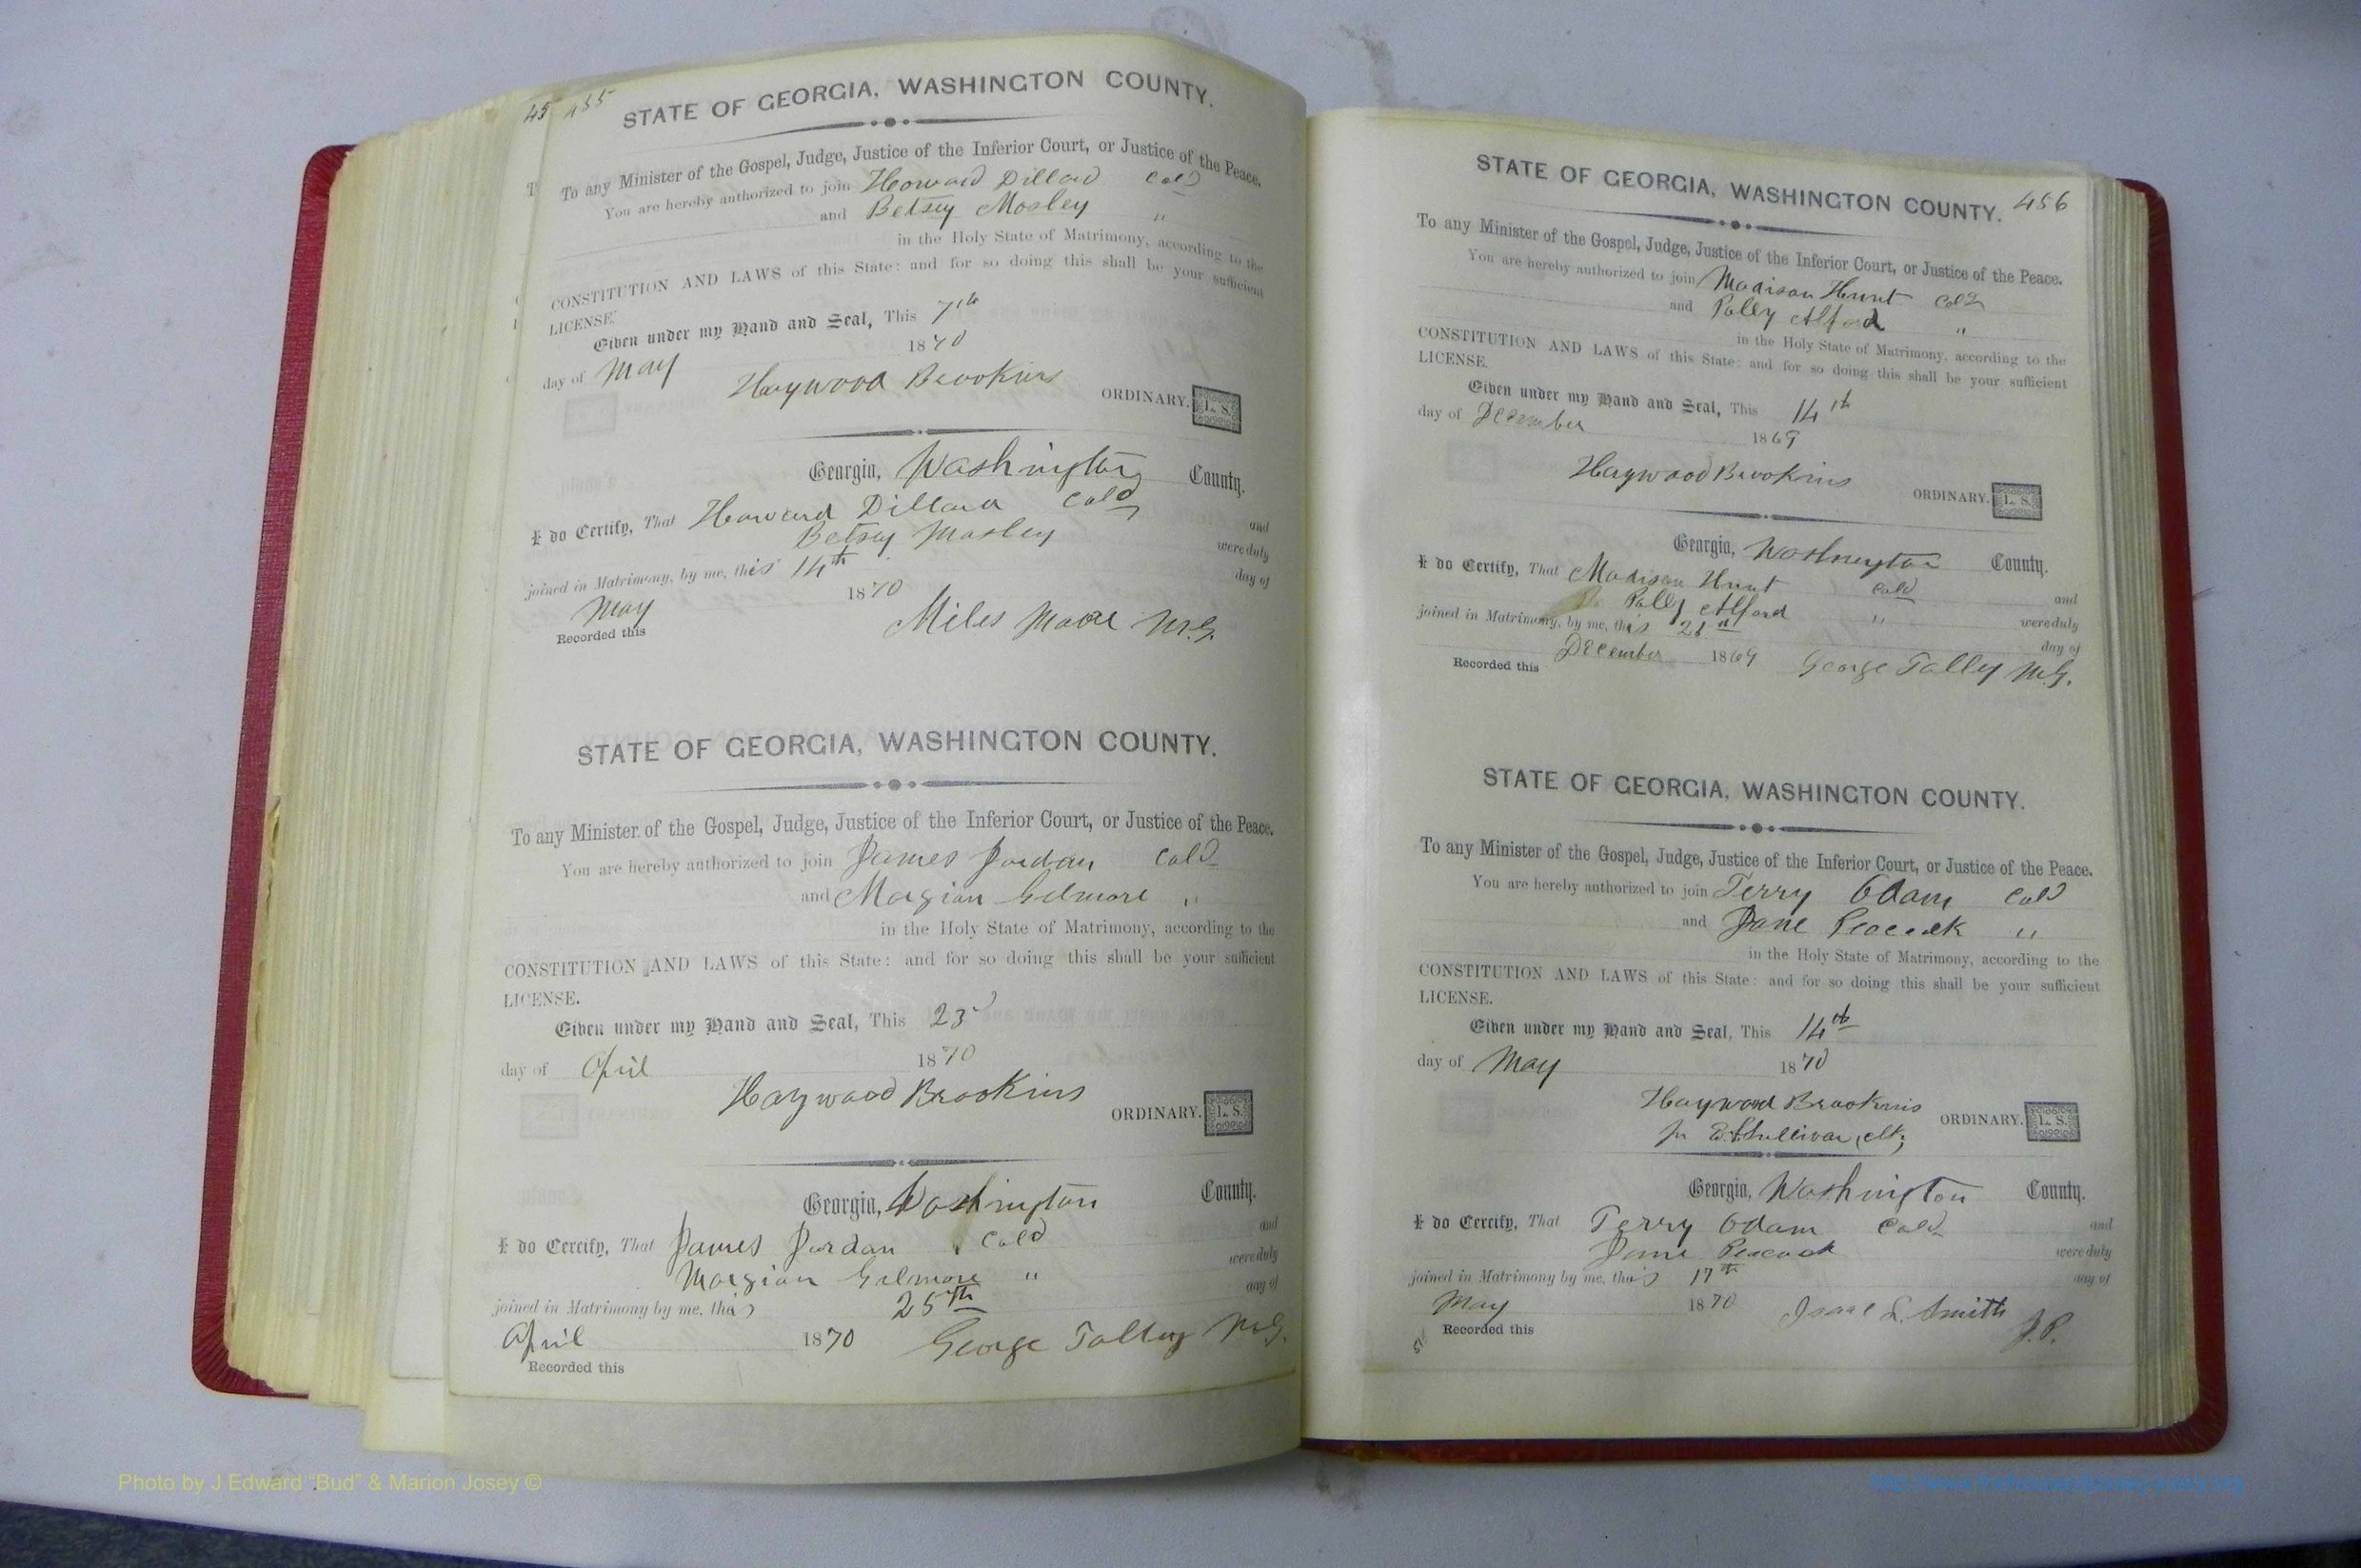 455
STATE OF GEORGIA, WASHINGTON COUNTY.
To any Minister of the Gospel, Judge, Justice of the Inferior Court, or Justice of the Peace.
You are hereby authorized to join Howard Dillard Cold
and Betsey Mosley "
in the Holy State of Matrimony, according to the
CONSTITUTION AND LAWS of this State: and for so doing this shall be your sufficient
LICENSE.
Given under my Hand and Seal, This 7th
day of May 1870
Haywood Brookins ORDINARY. L. S.
Georgia, Washington County.
I do Certify, That Howard Dillard Cold and
Betsey Mosley were duly
joined in Matrimony, by me, this 14th day of
May 1870
Recorded this Miles Moore M.G.
STATE OF GEORGIA, WASHINGTON COUNTY.
To any Minister of the Gospel, Judge, Justice of the Inferior Court, or Justice of the Peace.
You are hereby authorized to join James Jordan Cold
and Morgian Gilmore "
in the Holy State of Matrimony, according to the
CONSTITUTION AND LAWS of this State: and for so doing this shall be your sufficient
LICENSE.
Given under my Hand and Seal, This 23d
day of April 1870
Haywood Brookins ORDINARY. L. S.
Georgia, Washington County.
I do Certify, That James Jordan Cold and
Morgian Gilmore " were duly
joined in Matrimony by me, this 25th day of
April 1870 George Talley M.G.
Recorded this
456
STATE OF GEORGIA, WASHINGTON COUNTY.
To any Minister of the Gospel, Judge, Justice of the Inferior Court, or Justice of the Peace.
You are hereby authorized to join Madison Hunt Cold
and Polly Alford "
in the Holy State of Matrimony, according to the
CONSTITUTION AND LAWS of this State: and for so doing this shall be your sufficient
LICENSE.
Given under my Hand and Seal, This 14th
day of December 1869
Haywood Brookins ORDINARY. L. S.
Georgia, Washington County.
I do Certify, That Madison Hunt Cold and
Polly Alford " were duly
joined in Matrimony, by me, this day of
December 1869 George Talley M.G.
Recorded this
STATE OF GEORGIA, WASHINGTON COUNTY.
To any Minister of the Gospel, Judge, Justice of the Inferior Court, or Justice of the Peace.
You are hereby authorized to join Terry Odam Cold
and Jane Peacock "
in the Holy State of Matrimony, according to the
CONSTITUTION AND LAWS of this State: and for so doing this shall be your sufficient
LICENSE.
Given under my Hand and Seal, This 14th
day of May 1870
Haywood Brookins ORDINARY. L. S.
Sullivan, clk;
Georgia, Washington County.
I do Certify, That Terry Odam Cold and
Jane Peacock were duly
joined in Matrimony by me, this 17th day of
May 1870 Isaac L. Smith
Recorded this J.P.
Photo by J Edward "Bud" & Marion Josey ©